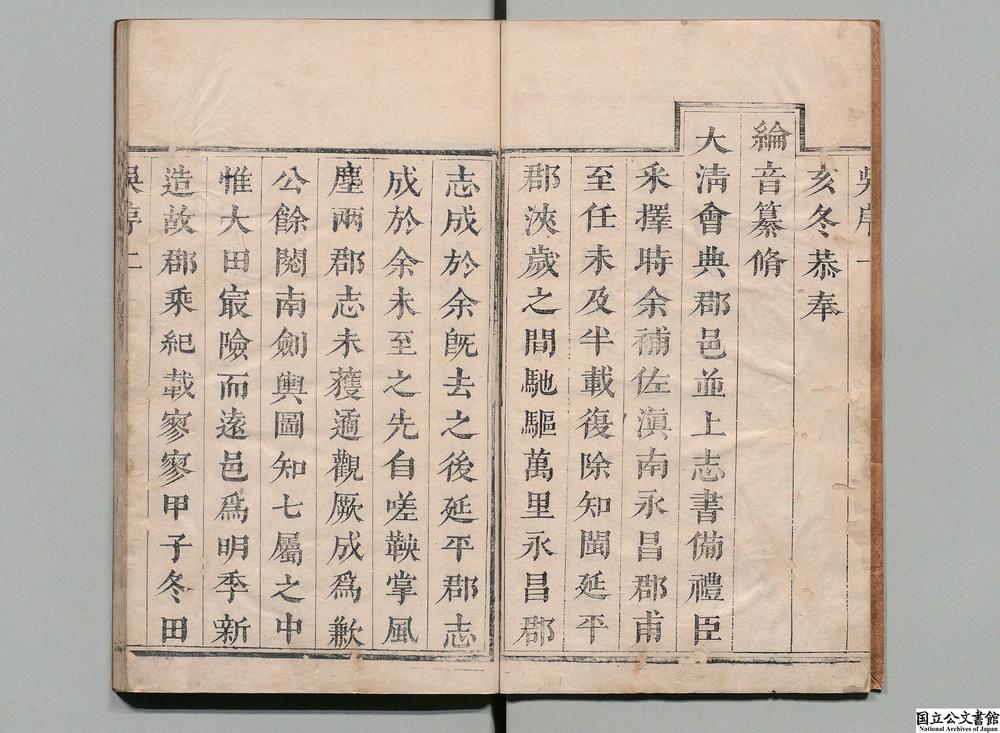 吳序一
亥冬恭奉
綸音纂脩
大淸會典郡邑並上志書備禮臣
釆擇時余補佐滇南永昌郡甫
至任未及半載復除知閩延平
郡浹歲之間馳驅萬里永昌郡
志成於余旣去之後延平郡志
成於余未至之先自嗟鞅掌風
塵兩郡志未獲遹觀厥成爲歉
公餘閱南劍輿圖知七屬之中
惟大田㝡險而遠邑爲明季新
造故郡乘紀載寥寥甲子冬田
吳序二
国立公文書館
National Archives of Japan